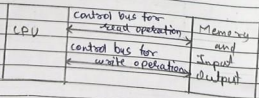 CPU
control bus for
read operation
control bus for
write operation
Memory
and
Input
Output